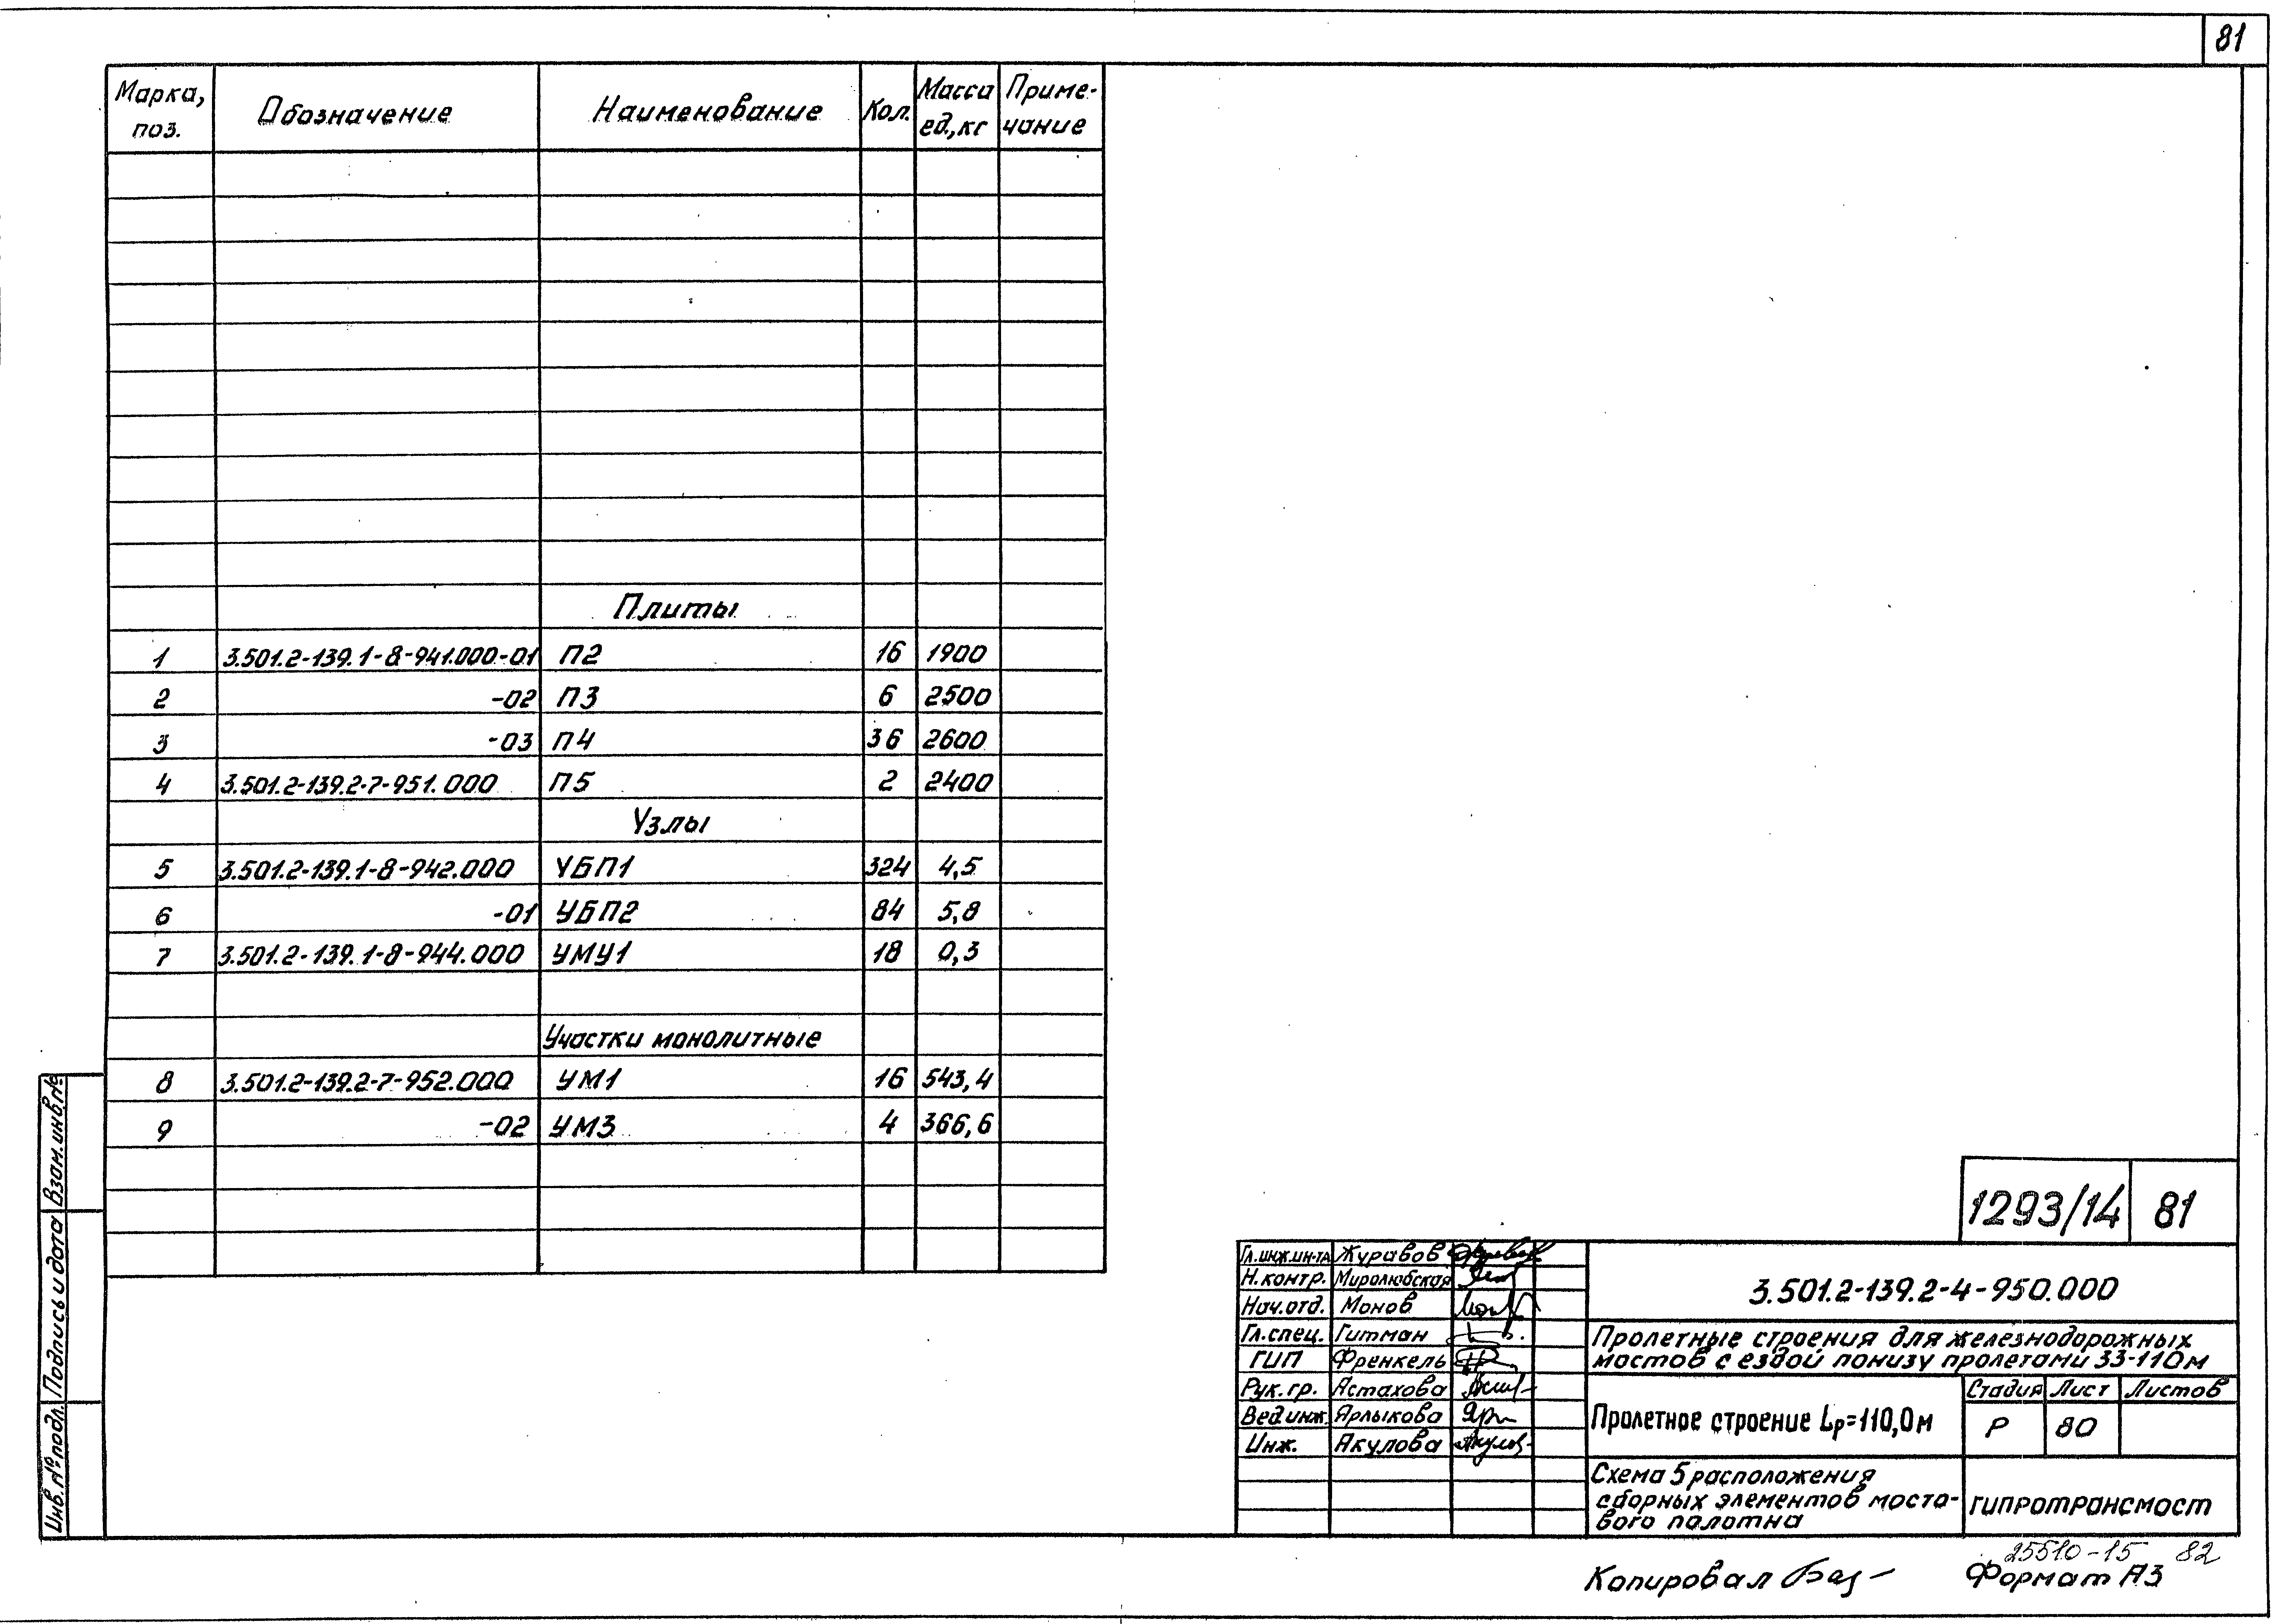 81
Марка, поз. Обозначение Наименование Кол. Масса ед., кг Приме-чание
Плиты
1 3.501.2-139.1-8-941.000-01 П2 16 1900
2 -02 П3 6 2500
3 -03 П4 36 2600
4 3.501.2-139.2-7-951.000 П5 2 2400
Узлы
5 3.501.2-139.1-8-942.000 УБП1 324 4,5
6 -01 УБП2 84 5,8
7 3.501.2-139.1-8-944.000 УМУ1 18 0,3
Участки монолитные
8 3.501.2-139.2-7-952.000 УМ1 16 543,4
9 -02 УМ3 4 366,6
Инв.№подл. Подпись и дата Взам.инв.№
1293/14 81
Гл.инж.ин-та Журавов
Н.контр. Миролюбская
Нач.отд. Монов
Гл.спец. Гитман
ГИП Френкель
Рук.гр. Астахова
Вед.инж. Ярлыкова
Инж. Акулова
3.501.2-139.2-4-950.000
Пролетные строения для железнодорожных
мостов с ездой понизу пролетами 33-110м
Пролетное строение Lр=110,0м
Стадия Лист Листов
Р 80
Схема 5 расположения
сборных элементов мосто-
вого полотна
гипротрансмост
25510-15 82
Копировал
Формат А3